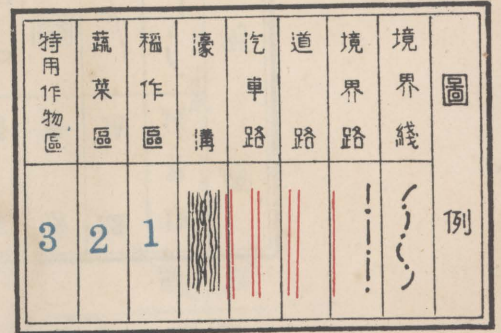 圖例
境界綫
境界路
道路
汽車路
濠溝
稻作區
蔬菜區
特用作物區
1
2
3